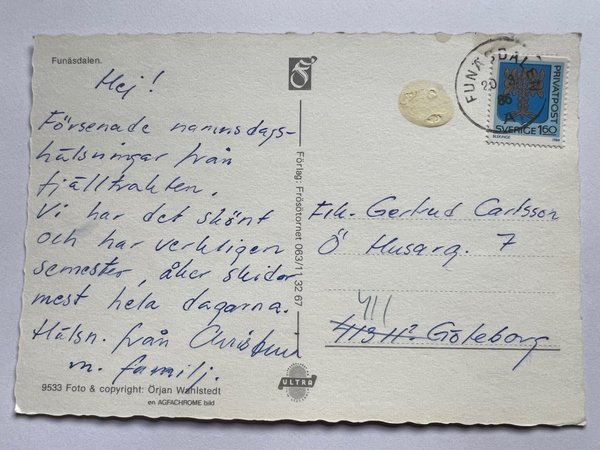 Funäsdalen.
Hej!
Försenade namnsdags-
hälsningar från
fjälltrakten.
Vi har det skönt
och har verkligen
semester, åker skidor
mest hela dagarna.
Hälsn. från Christina
m. familj.
9533 Foto & copyright: Örjan Wahlstedt
en AGFACHROME bild
Förlag: Frösötornet 063/11 32 67
ULTRA
FUNÄSDALEN
20
86
A
PRIVATPOST
SVERIGE 160
BLEKINGE
Frk. Gertrud Carlsson
Ö Husarg. 7
411
Göteborg